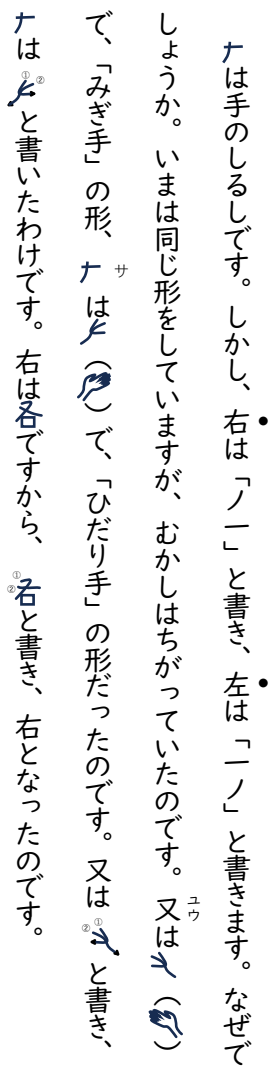 𠂇は手のしるしです。しかし、右は「ノ一」と書き、左は「一ノ」と書きます。なぜで
しょうか。いまは同じ形をしていますが、むかしはちがっていたのです。又ユウは（）
で、「みぎ手」の形、𠂇サは（）で、「ひだり手」の形だったのです。又は①②と書き、
𠂇は①②と書いたわけです。右は各ですから、①②右と書き、右となったのです。